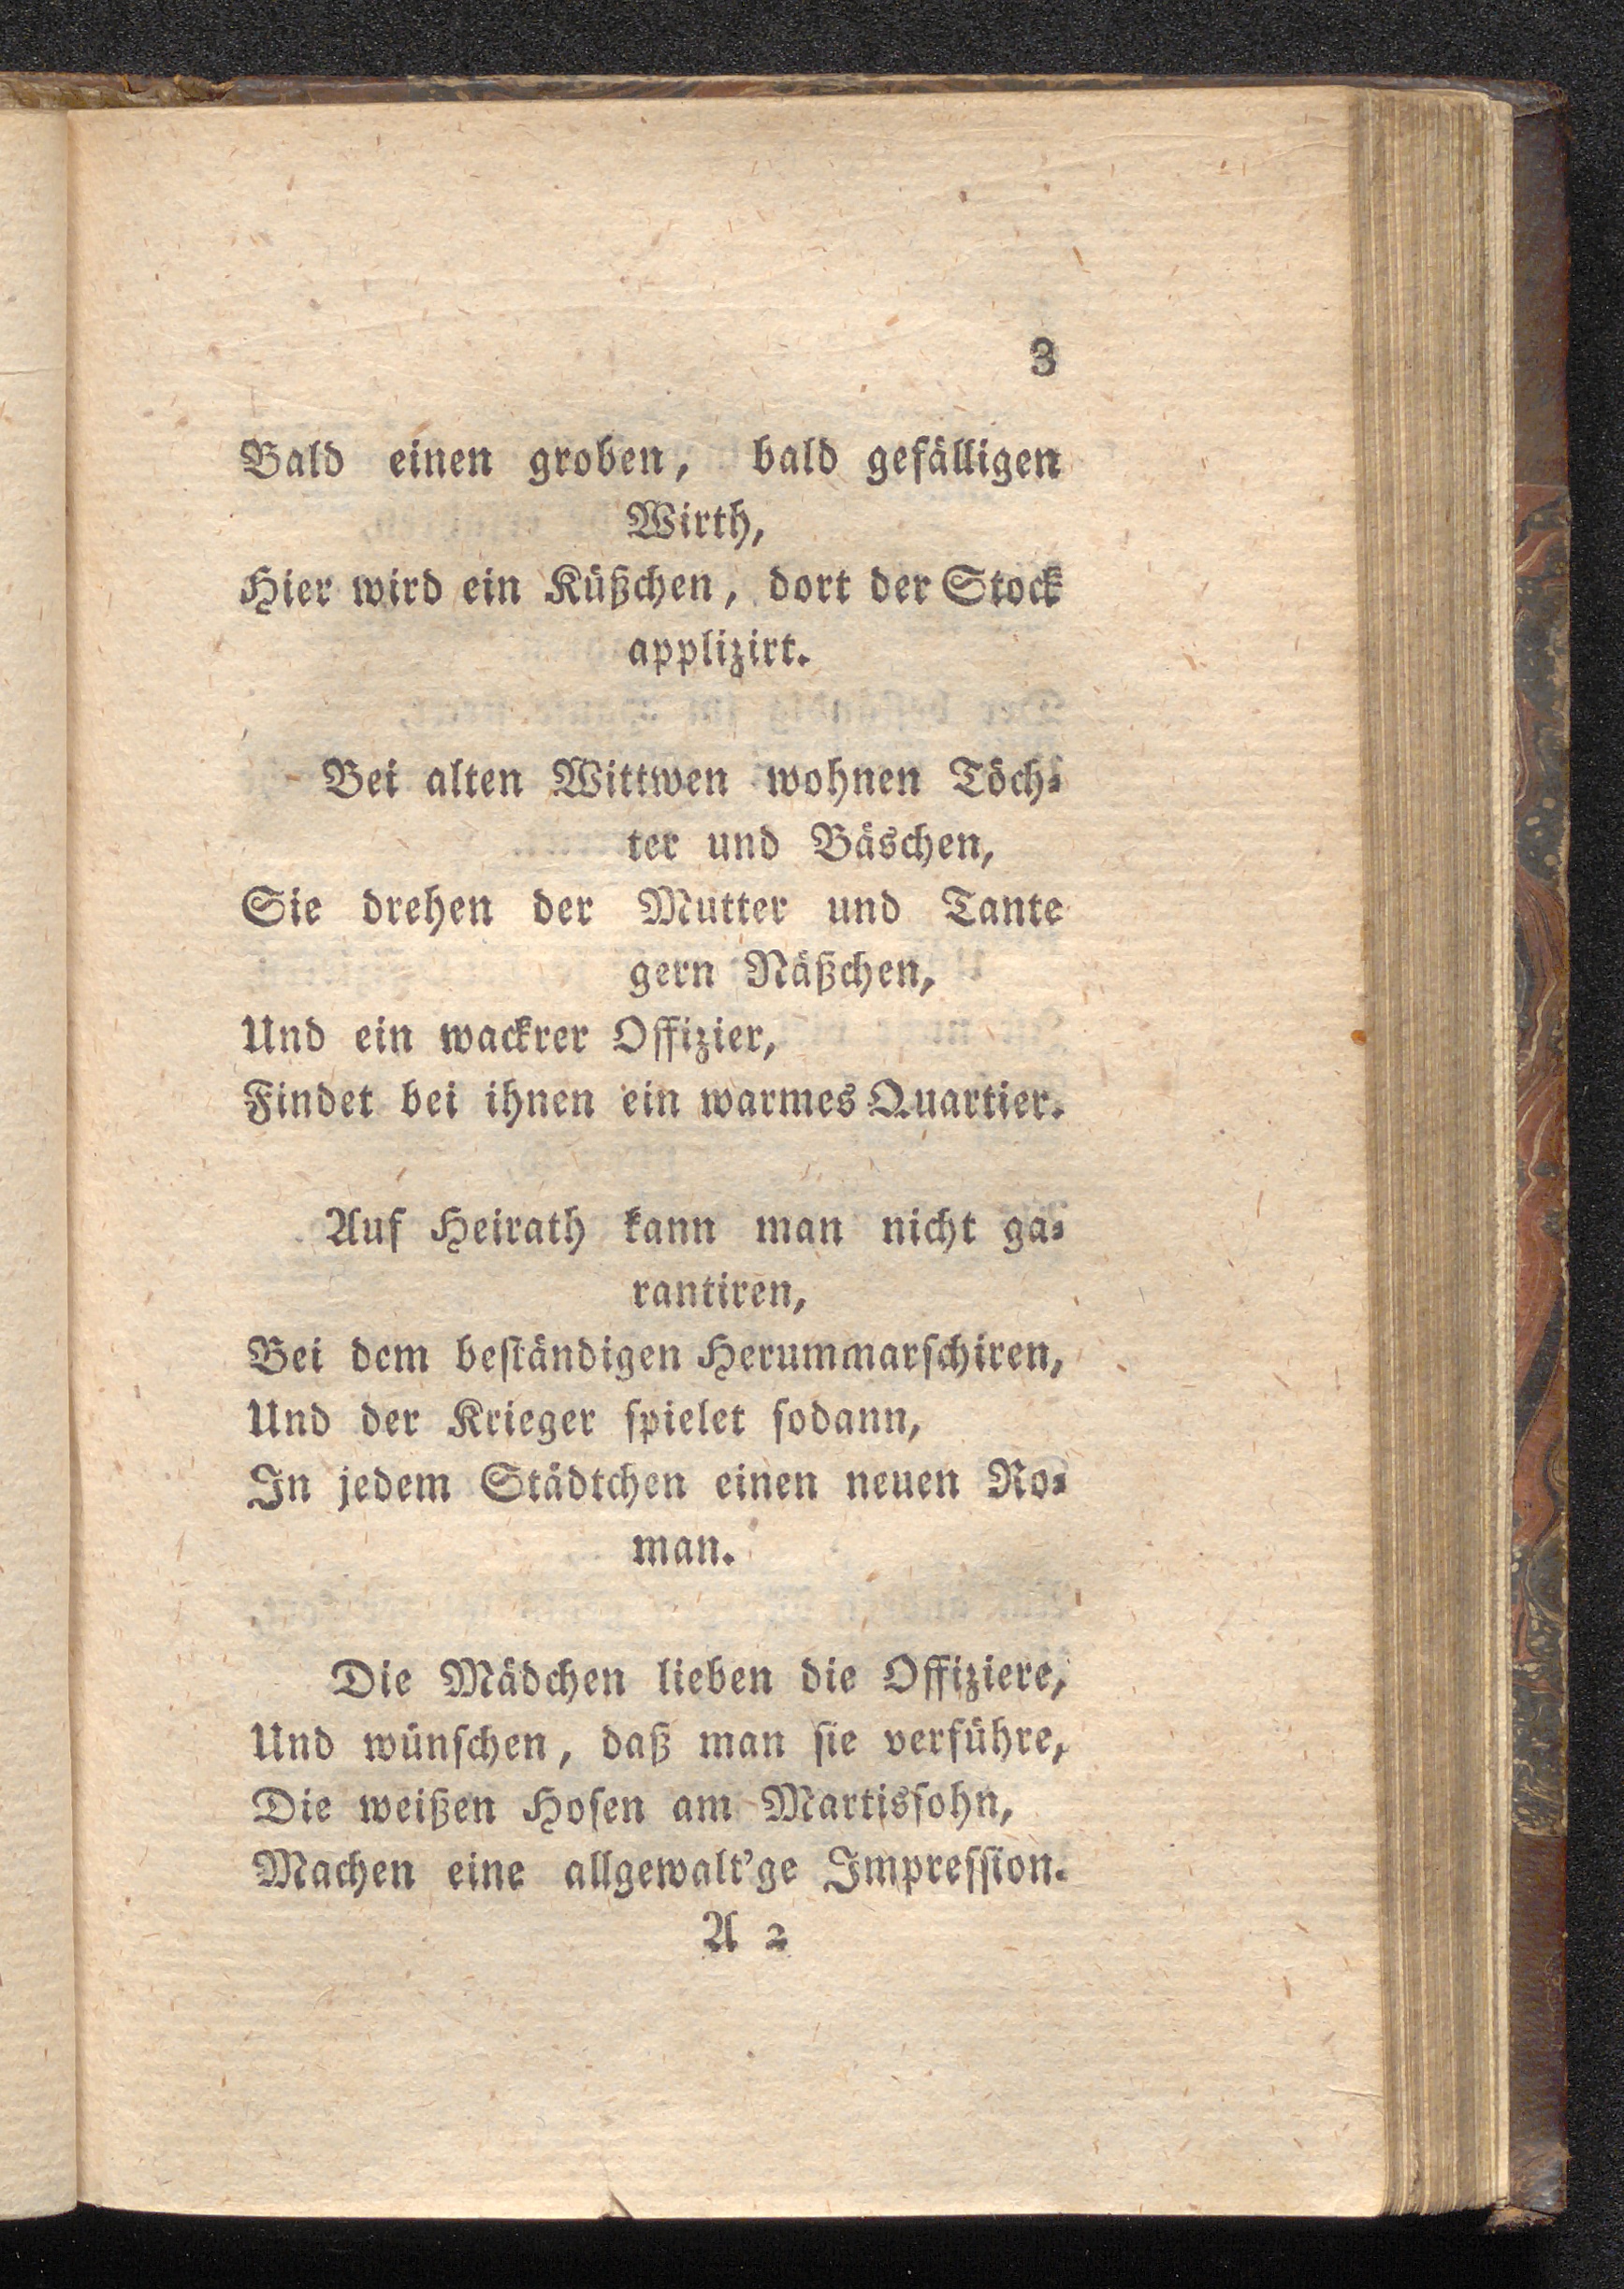 3
Bald einen groben, bald gefälligen
Wirth,
Hier wird ein Küßchen, dort der Stock
applizirt.
Bei alten Wittwen wohnen Töch-
ter und Bäschen,
Sie drehen der Mutter und Tante
gern Näßchen,
Und ein wackrer Offizier,
Findet bei ihnen ein warmes Quartier.
Auf Heirath kann man nicht ga-
rantiren,
Bei dem beständigen Herummarschiren,
Und der Krieger spielet sodann,
In jedem Städtchen einen neuen Ro-
man.
Die Mädchen lieben die Offiziere,
Und wünschen, daß man sie verführe,
Die weißen Hosen am Martissohn,
Machen eine allgewalt'ge Impression.
A 2